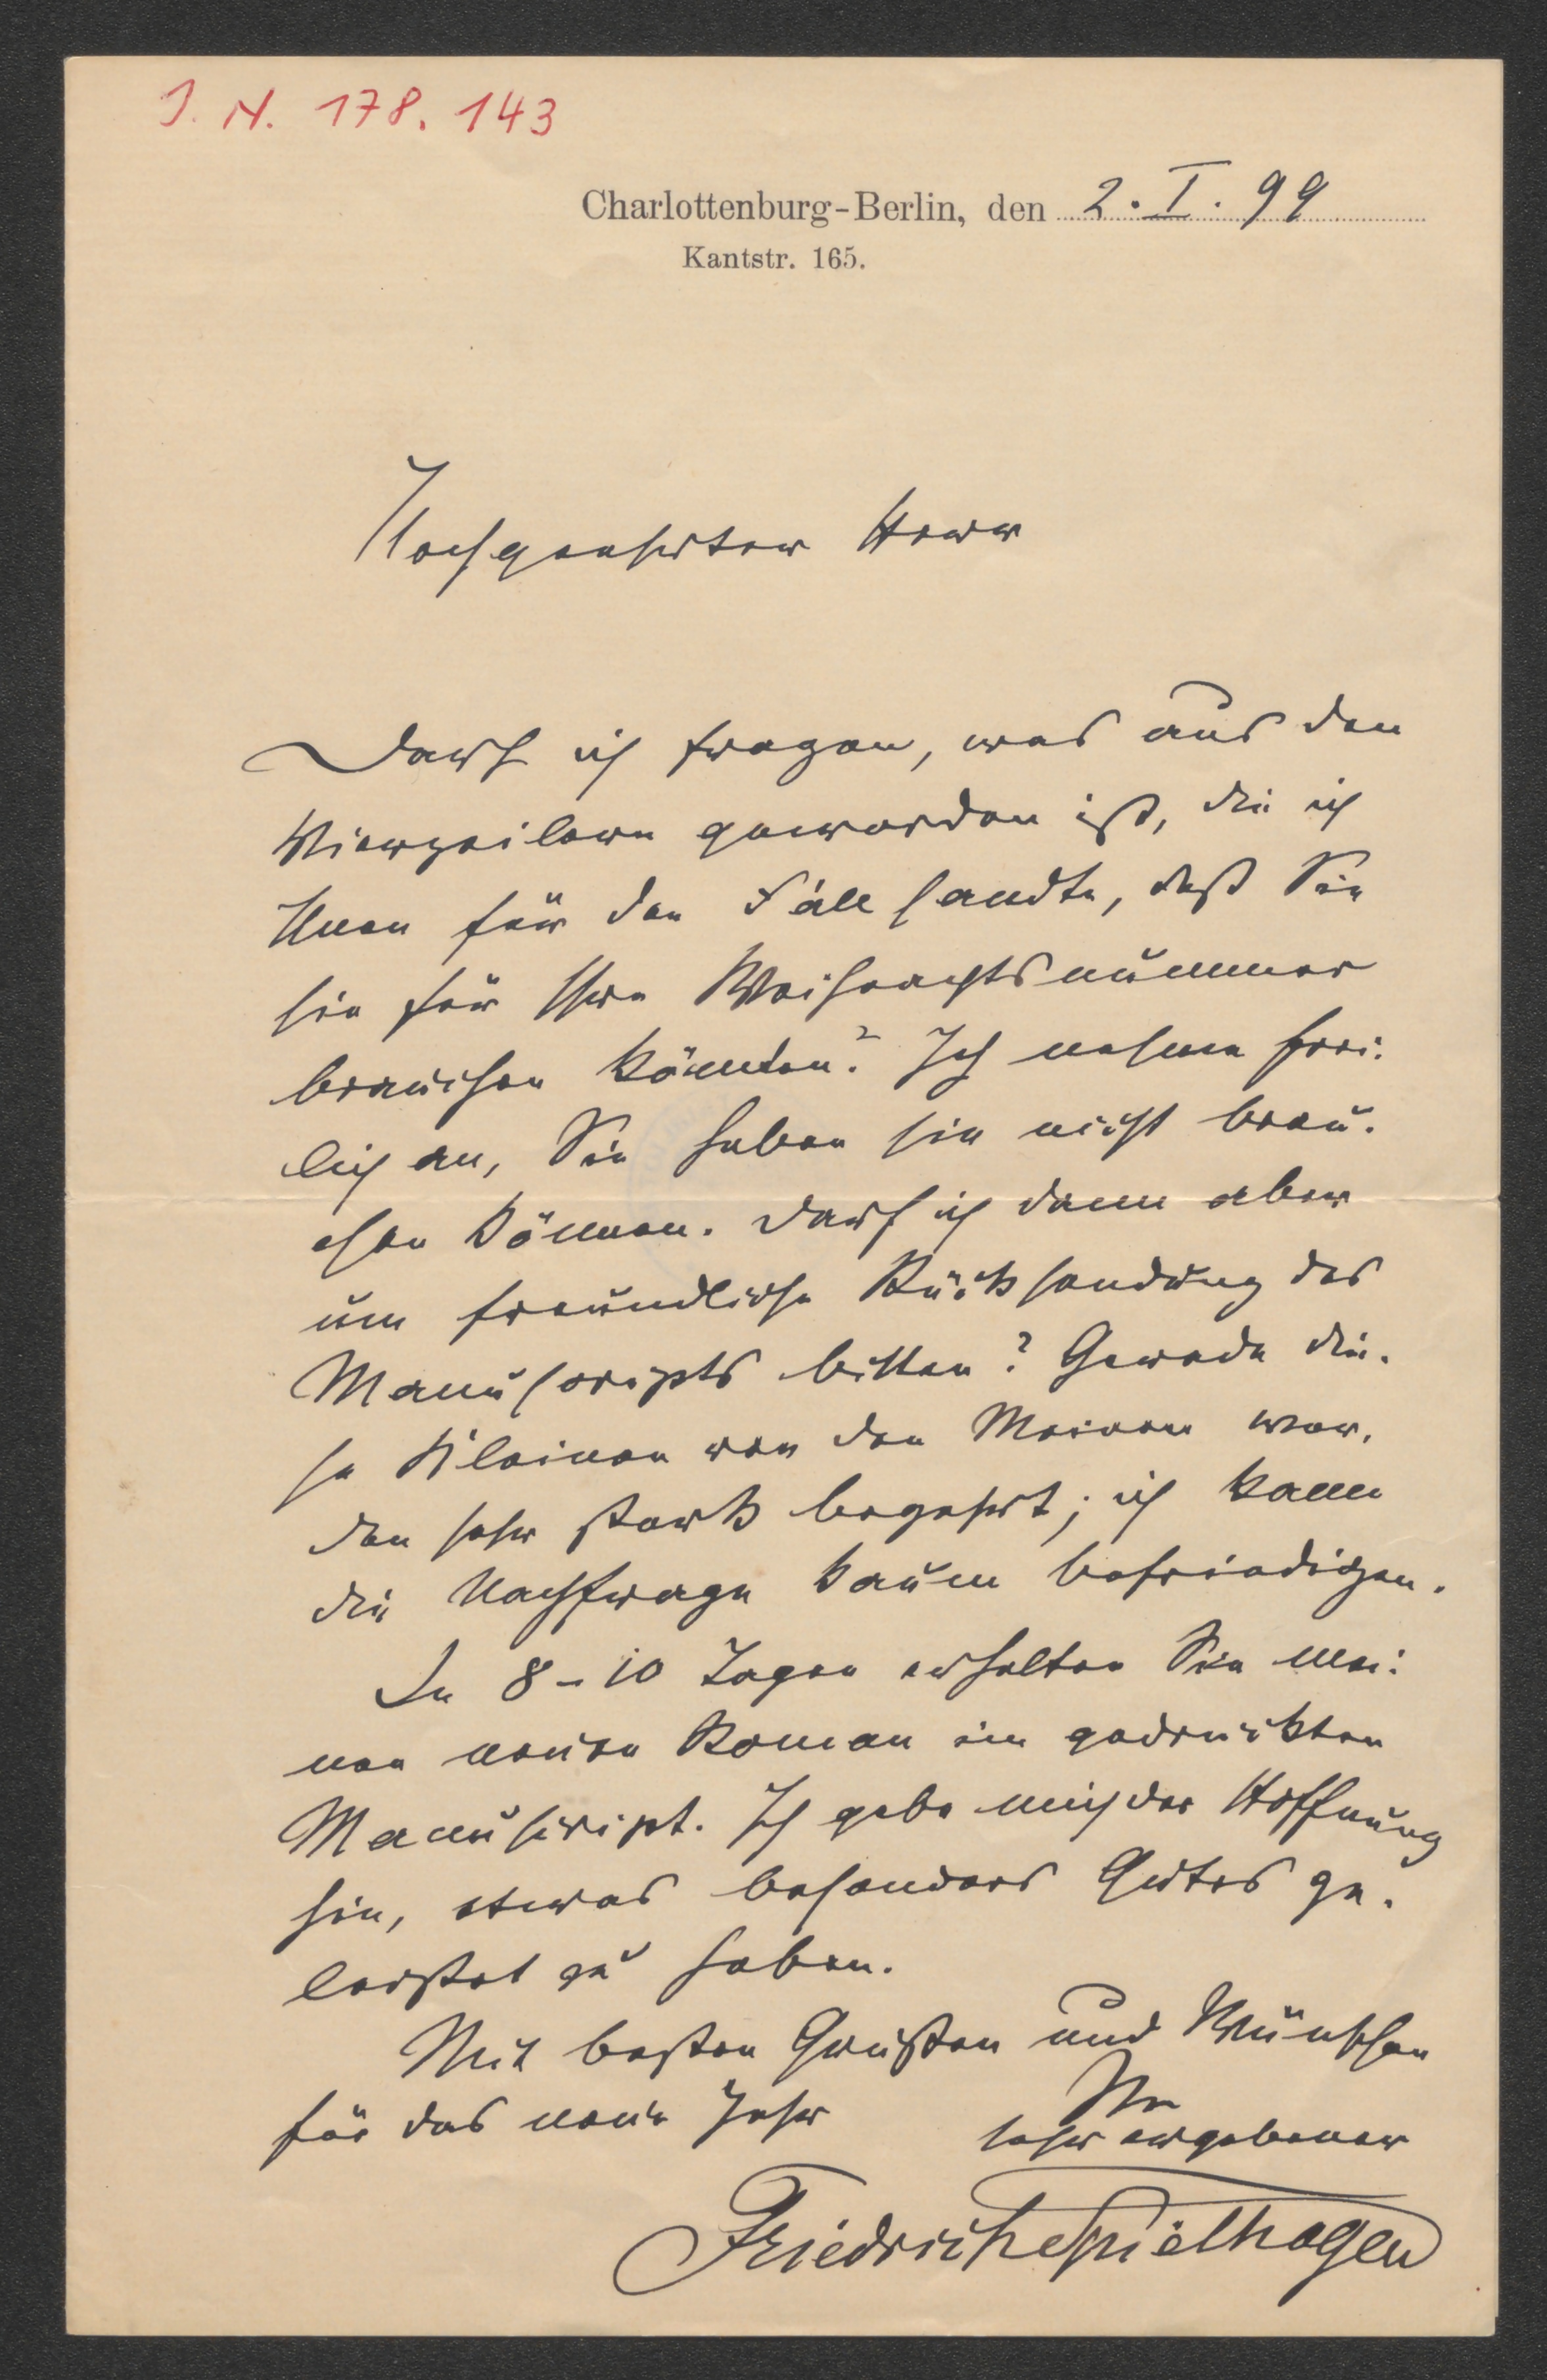 J. N. 178. 143
Charlottenburg-Berlin, den 2. I. 99
Kantstr. 165.
Hochgeehrter Herr
Darf ich fragen, was aus den
Vierzeilern geworden ist, die ich
Ihnen für den Fall sandte, daß Sie
sie für Ihre Weihnachtsnummer
brauchen könnten? Ich nehme frei-
lich an, Sie haben sie nicht brau-
chen können. Darf ich dann aber
um freundliche Rücksendung des
Manuscripts bitten? Gerade die-
se Kleinen von den Meinen wer-
den sehr stark begehrt; ich kann
die Nachfrage kaum befriedigen.
In 8-10 Tagen erhalten Sie mei-
nen neuen Roman im gedruckten
Manuscript. Ich gebe mich der Hoffnung
hin, etwas besonders Gutes ge-
leistet zu haben.
Mit besten Grüßen und Wünschen
für das neue Jahr
Ihr
sehr ergebener
Friedrich Spielhagen